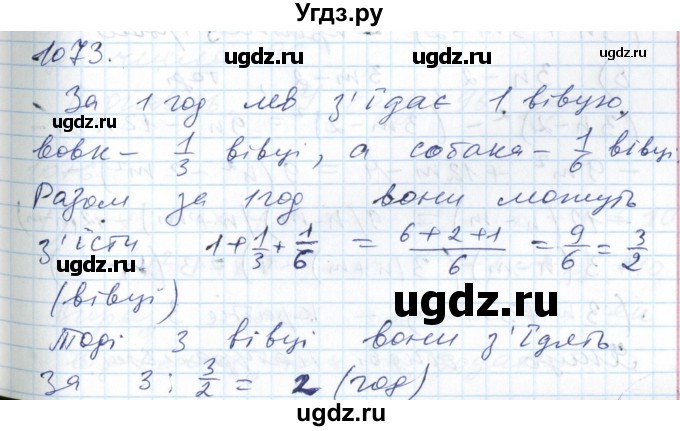 Угдз.ру
1073.
За 1 год лев з'їдає 1 вівцю,
вовк – 1/3 вівці, а собака – 1/6 вівці
Разом за 1 год вони можуть
з'їсти 1 + 1/3 + 1/6 = (6 + 2 + 1)/6 = 9/6 = 3/2
(вівці)
Тоді 3 вівці вони з'їдять
за 3 : 3/2 = 2 (год)
ugdz.ru
ugdz.ru
ugdz.ru
ugdz.ru
ugdz.ru
ugdz.ru
ugdz.ru
ugdz.ru
ugdz.ru
ugdz.ru
ugdz.ru
ugdz.ru
ugdz.ru